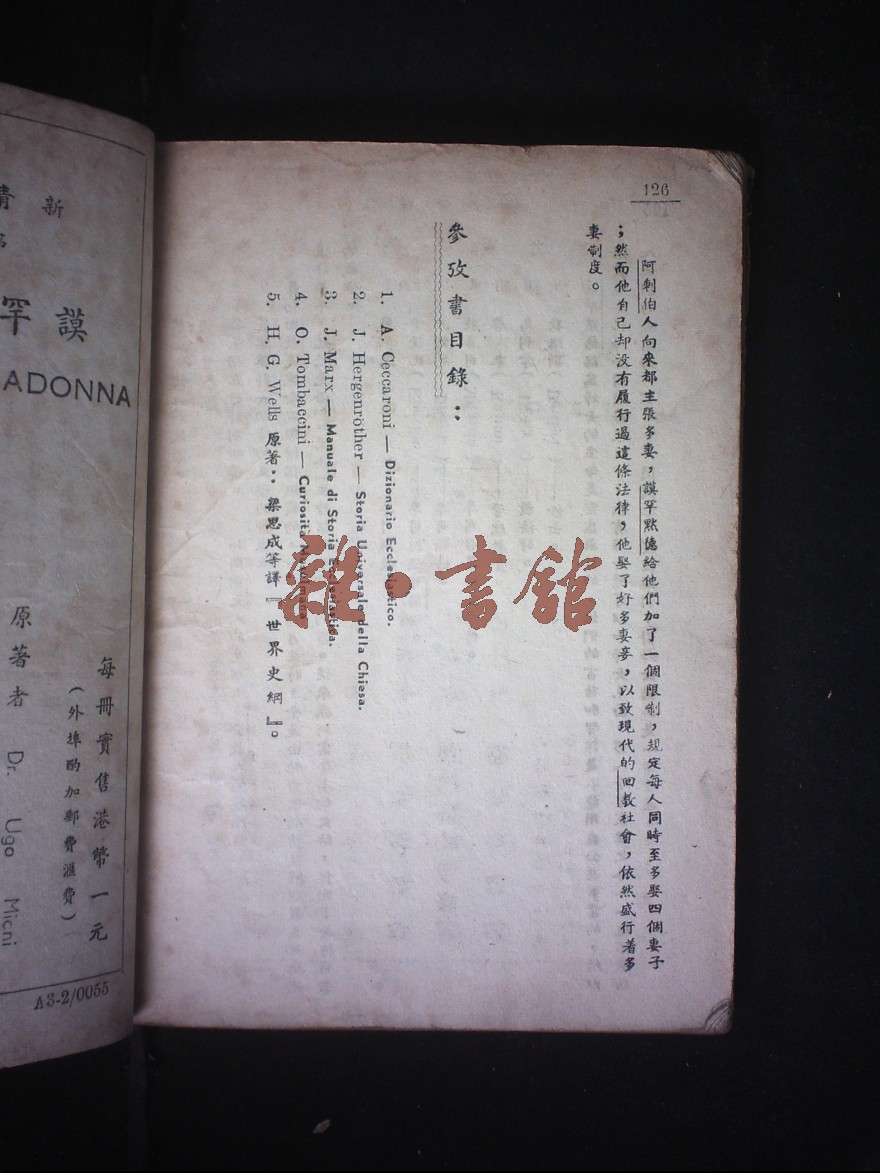 126
阿剌伯人向來都主張多妻，謨罕默德給他們加了一個限制，規定每人同時至多娶四個妻子
；然而他自己却没有履行過這條法律，他娶了好多妻妾，以致現代的回教社會，依然盛行着多
妻制度。
參攷書目錄：
1. A. Ceccaroni — Dizionario Ecclesiastico.
2. J. Hergenröther — Storia Universale della Chiesa.
3. J. Marx — Manuale di Storia Ecclesiastica.
4. O. Tombaccini — Curiosità
5. H. G. Wells 原著：梁思成等譯『世界史綱』。
雜·書舘
新
謨
罕
ADONNA
每冊實售港幣一元
（外埠酌加郵費滙費）
原著者 Dr. Ugo Micni
A3-2/0055